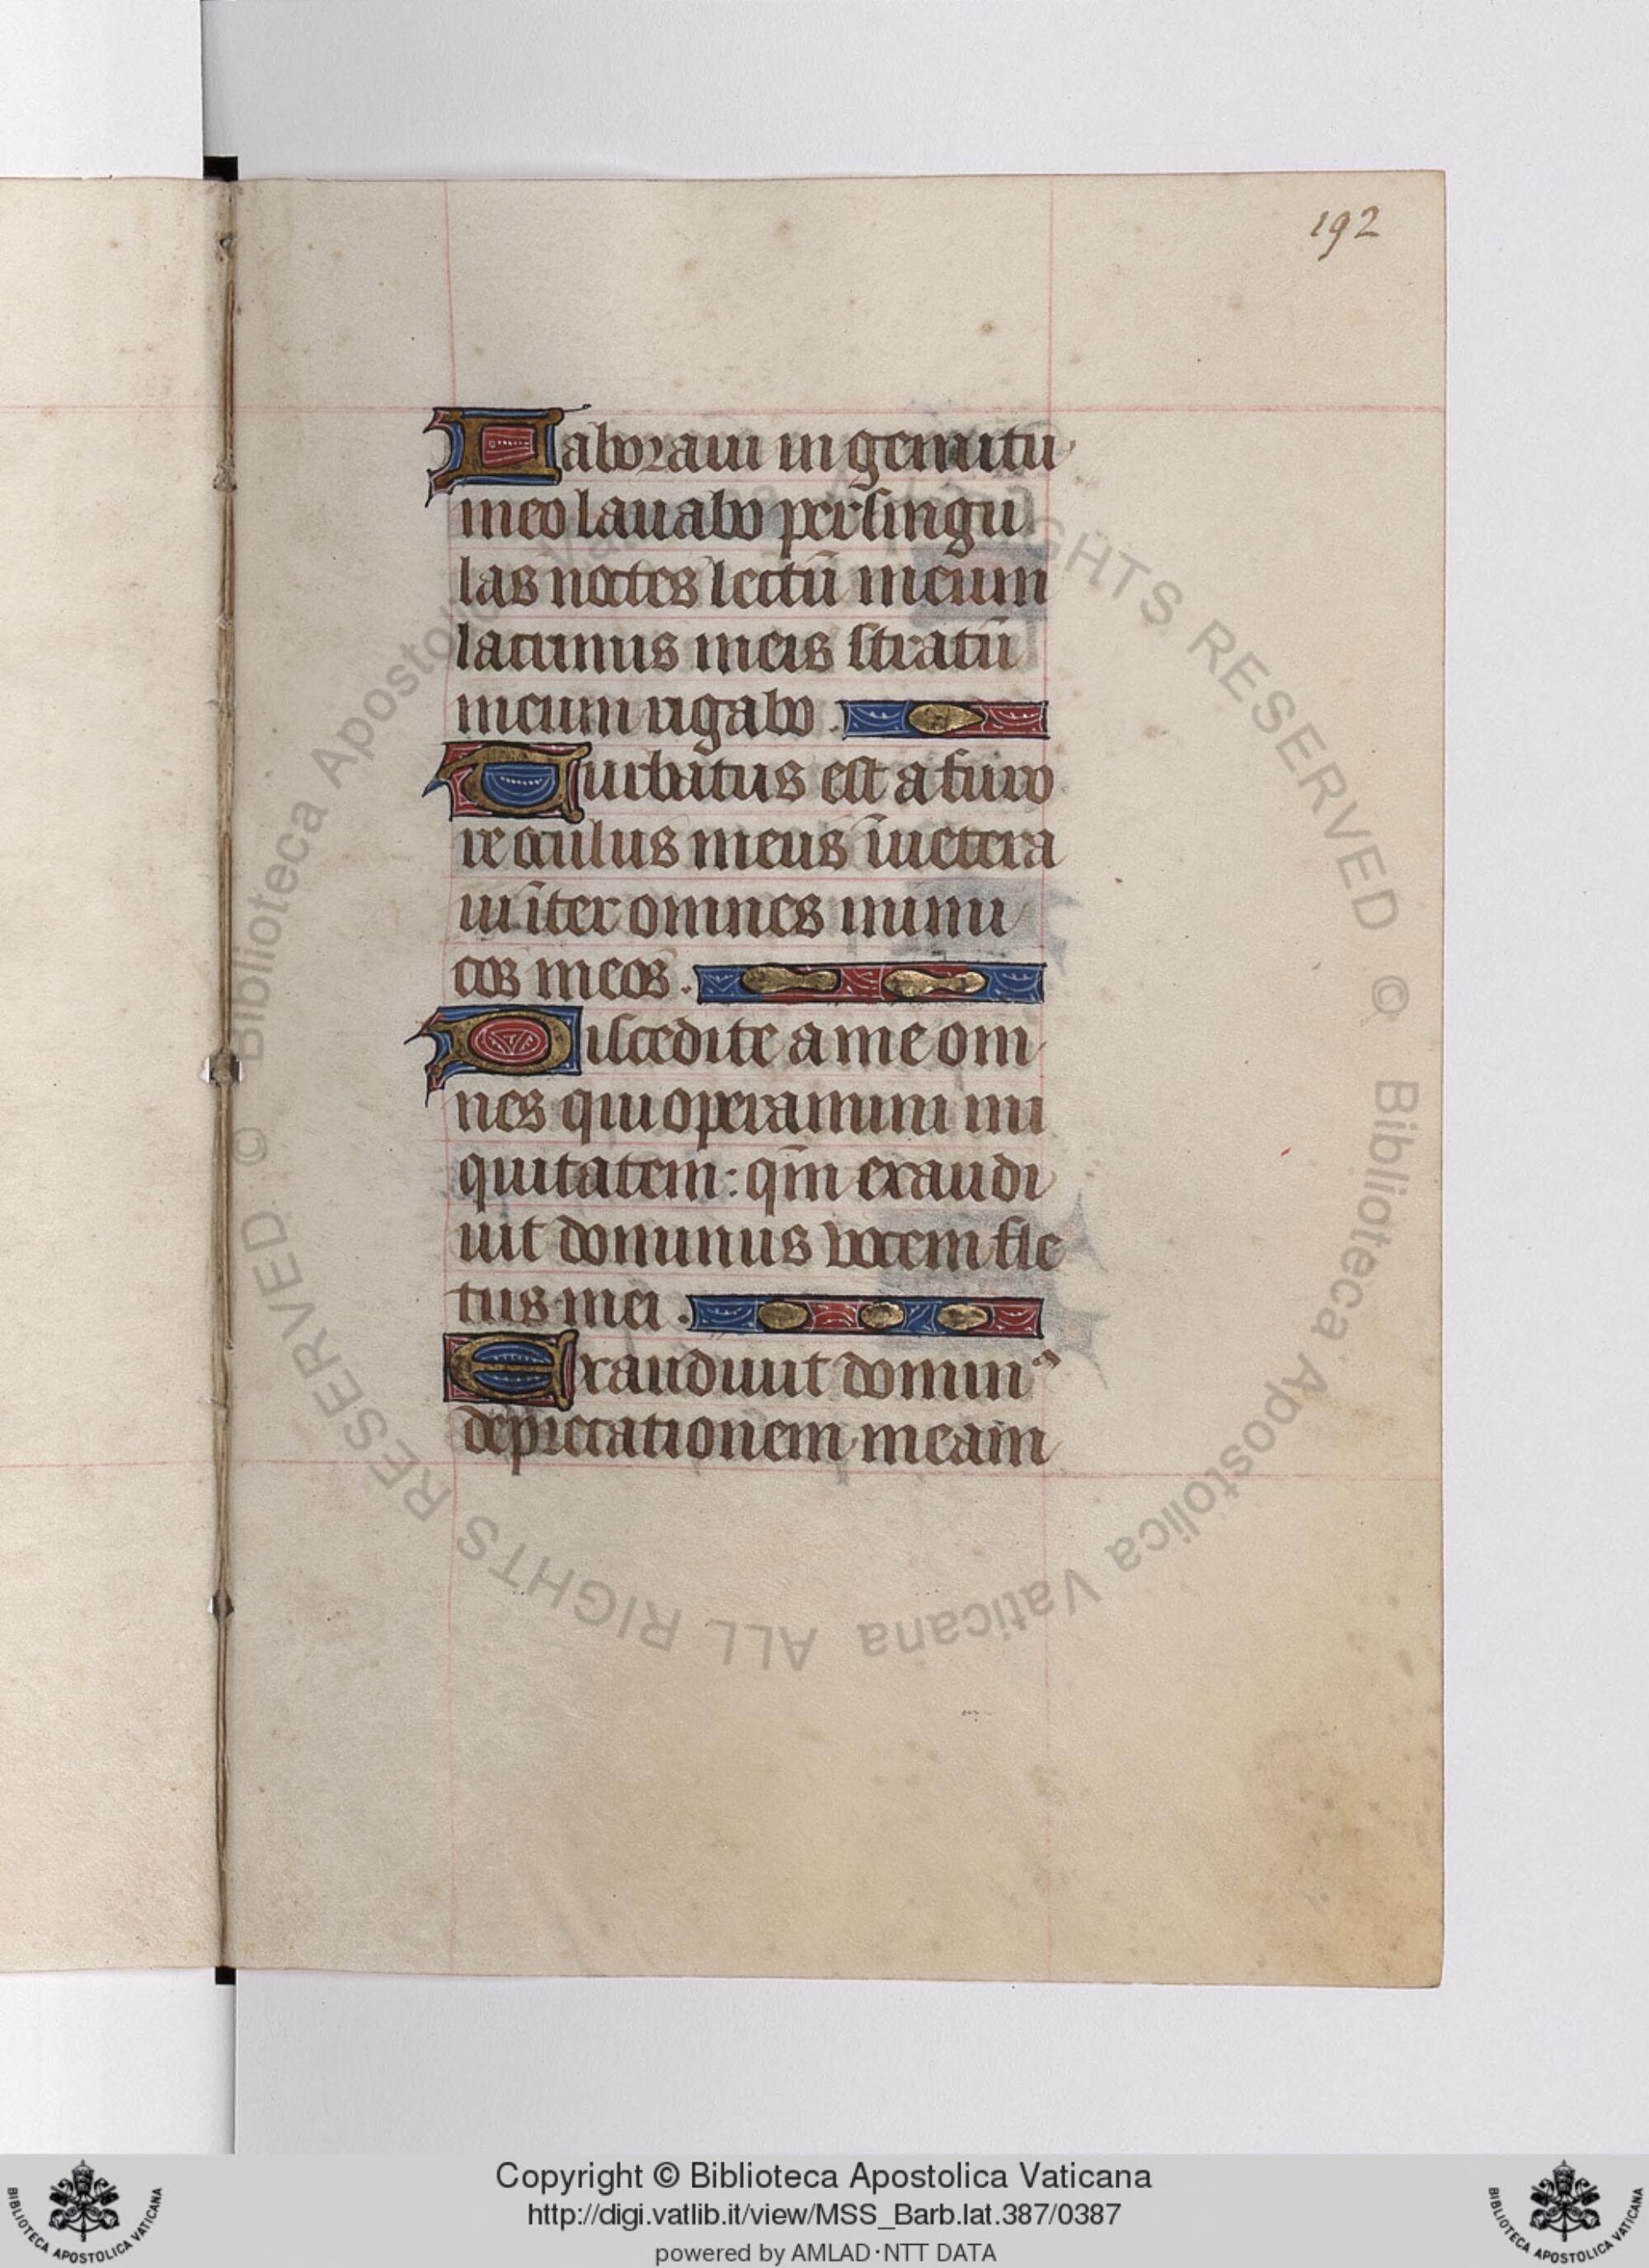 192
Laboraui in gemitu
meo lauabo per singu
las noctes lectū meum
lacrimis meis stratū
meum rigabo .
Turbatus est a furo
re oculus meus īuetera
ui īter omnes inimi
cos meos .
Discedite a me om
nes qui operamini ini
quitatem : qm̄ exaudi
uit dominus uocem fle
tus mei .
Exaudiuit dominꝰ
deprecationem meam
© Biblioteca Apostolica Vaticana ALL RIGHTS RESERVED
© Biblioteca Apostolica Vaticana ALL RIGHTS RESERVED
Copyright © Biblioteca Apostolica Vaticana
http://digi.vatlib.it/view/MSS_Barb.lat.387/0387
powered by AMLAD·NTT DATA
BIBLIOTECA APOSTOLICA VATICANA
BIBLIOTECA APOSTOLICA VATICANA